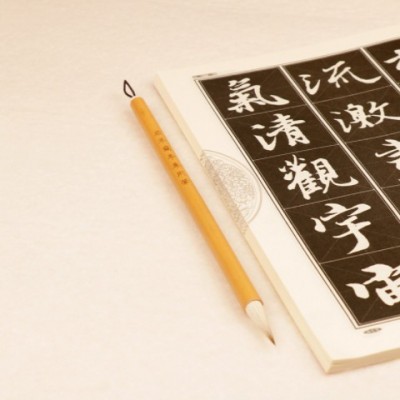 流激
氣清觀宇宙